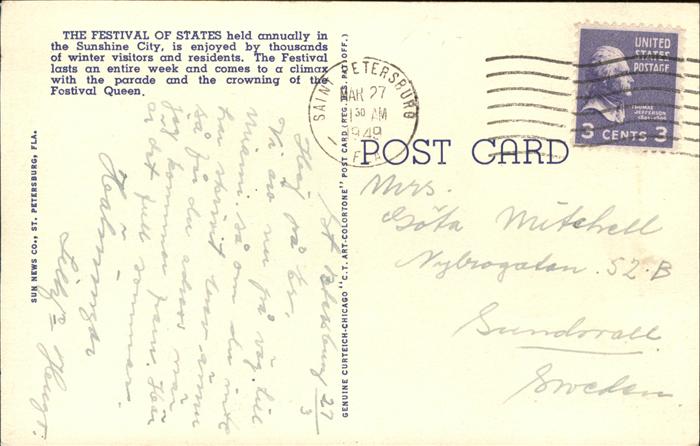 THE FESTIVAL OF STATES held annually in
the Sunshine City, is enjoyed by thousands
of winter visitors and residents. The Festival
lasts an entire week and comes to a climax
with the parade and the crowning of the
Fostival Queen.
SUN NEWS CO., ST. PETERSBURG, FLA.
St Petersburg 27/3
Hej på er,
Vi äro nu på väg till
Miami. så om du inte
har skrivit brev ännu
så får du adress när
jag kommer fram. Här
är det full sommar.
Hälsningar
Lilly
GENUINE CURTEICH-CHICAGO "C.T. ART-COLORTONE" POST CARD (REG. U.S. PAT. OFF.)
SAINT PETERSBURG
MAR 27
1 30 AM
1949
FLA
UNITED
STATES
POSTAGE
THOMAS
JEFFERSON
1801-1809
3 CENTS 3
POST CARD
Mrs.
Göta Mitchell
Nybrogatan 52 B
Sundsvall
Sweden